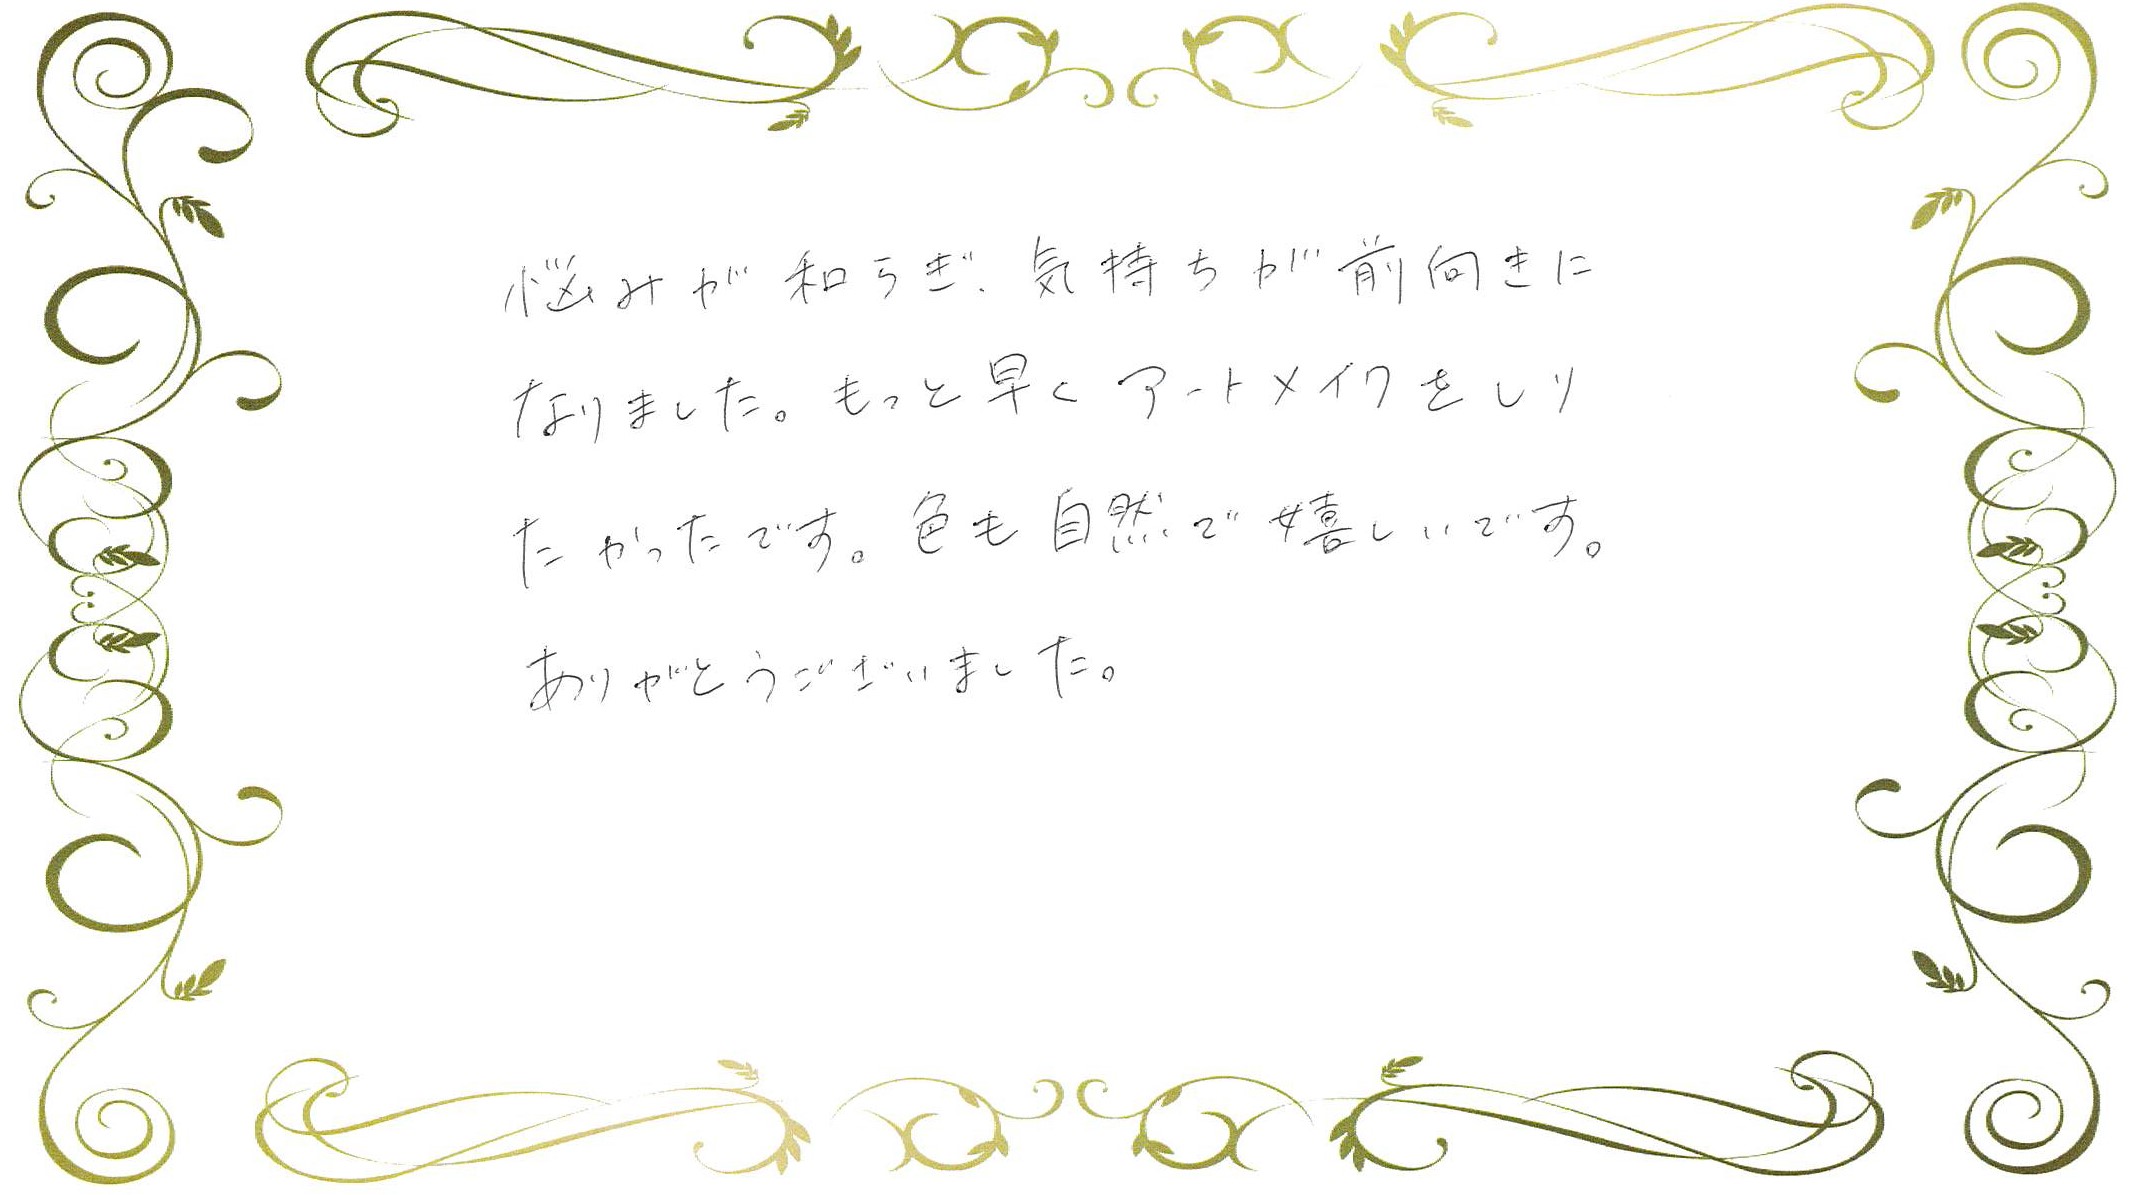 悩みが和らぎ、気持ちが前向きに
なりました。もっと早くアートメイクをしり
たかったです。色も自然で嬉しいです。
ありがとうございました。